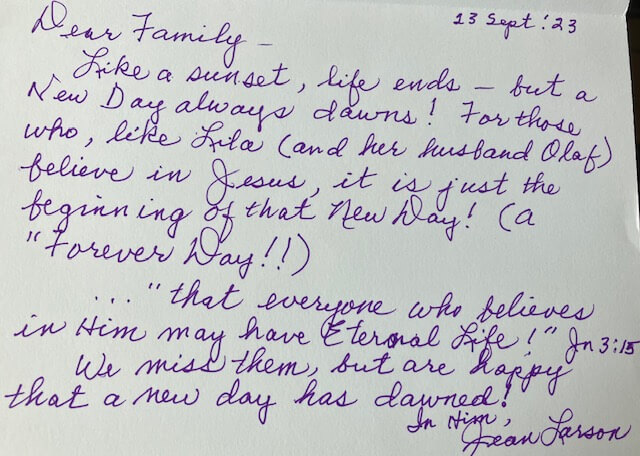 13 Sept '23
Dear Family –
Like a sunset, life ends – but a
New Day always dawns! For those
who, like Lila (and her husband Olaf)
believe in Jesus, it is just the
beginning of that New Day! (a
"Forever Day!!)
... "that everyone who believes
in Him may have Eternal Life!" Jn 3:15
We miss them, but are happy
that a new day has dawned!
In Him,
Jean Larson